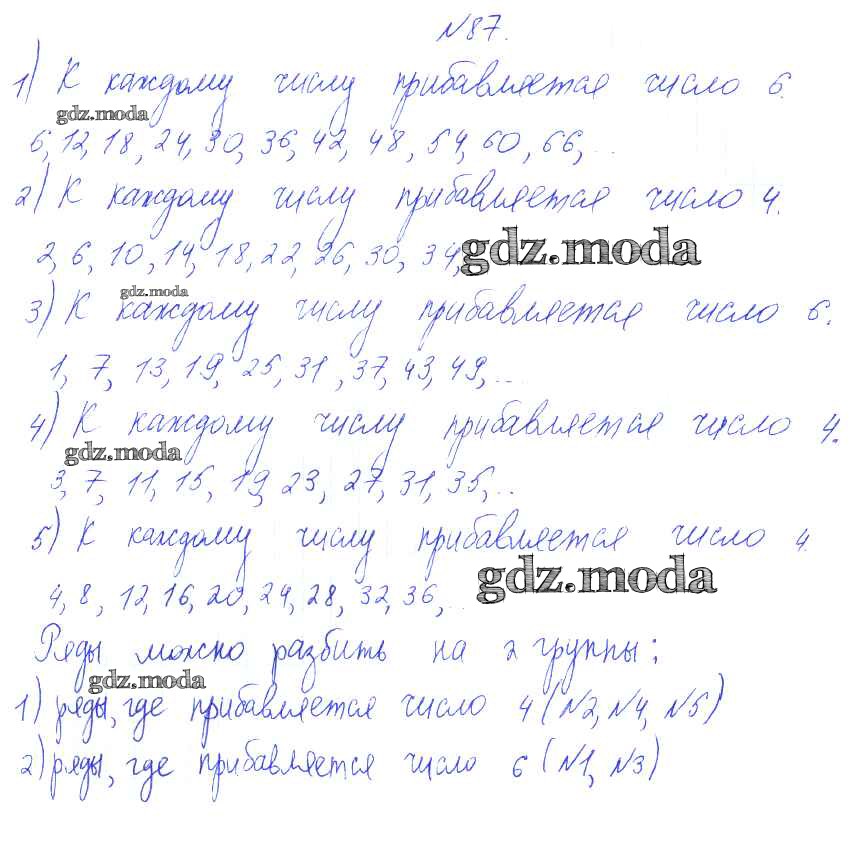 №87.
1) К каждому числу прибавляется число 6.
gdz.moda
6, 12, 18, 24, 30, 36, 42, 48, 54, 60, 66, ...
2) К каждому числу прибавляется число 4.
2, 6, 10, 14, 18, 22, 26, 30, 34, gdz.moda
gdz.moda
3) К каждому числу прибавляется число 6.
1, 7, 13, 19, 25, 31, 37, 43, 49, ...
4) К каждому числу прибавляется число 4.
gdz.moda
3, 7, 11, 15, 19, 23, 27, 31, 35, ...
5) К каждому числу прибавляется число 4.
4, 8, 12, 16, 20, 24, 28, 32, 36, ... gdz.moda
Ряды можно разбить на 2 группы:
gdz.moda
1) ряды, где прибавляется число 4 (№2, №4, №5)
2) ряды, где прибавляется число 6 (№1, №3)